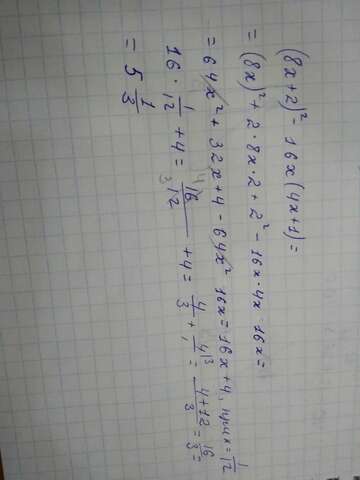 (8x+2)² - 16x(4x+1) =
= (8x)² + 2·8x·2 + 2² - 16x·4x - 16x =
= 64x² + 32x + 4 - 64x² 16x = 16x + 4, при x = 1/12
16 · 1/12 + 4 = 16/12 + 4 = 4/3 + 4/1 = 4+12/3 = 16/3 =
= 5 1/3